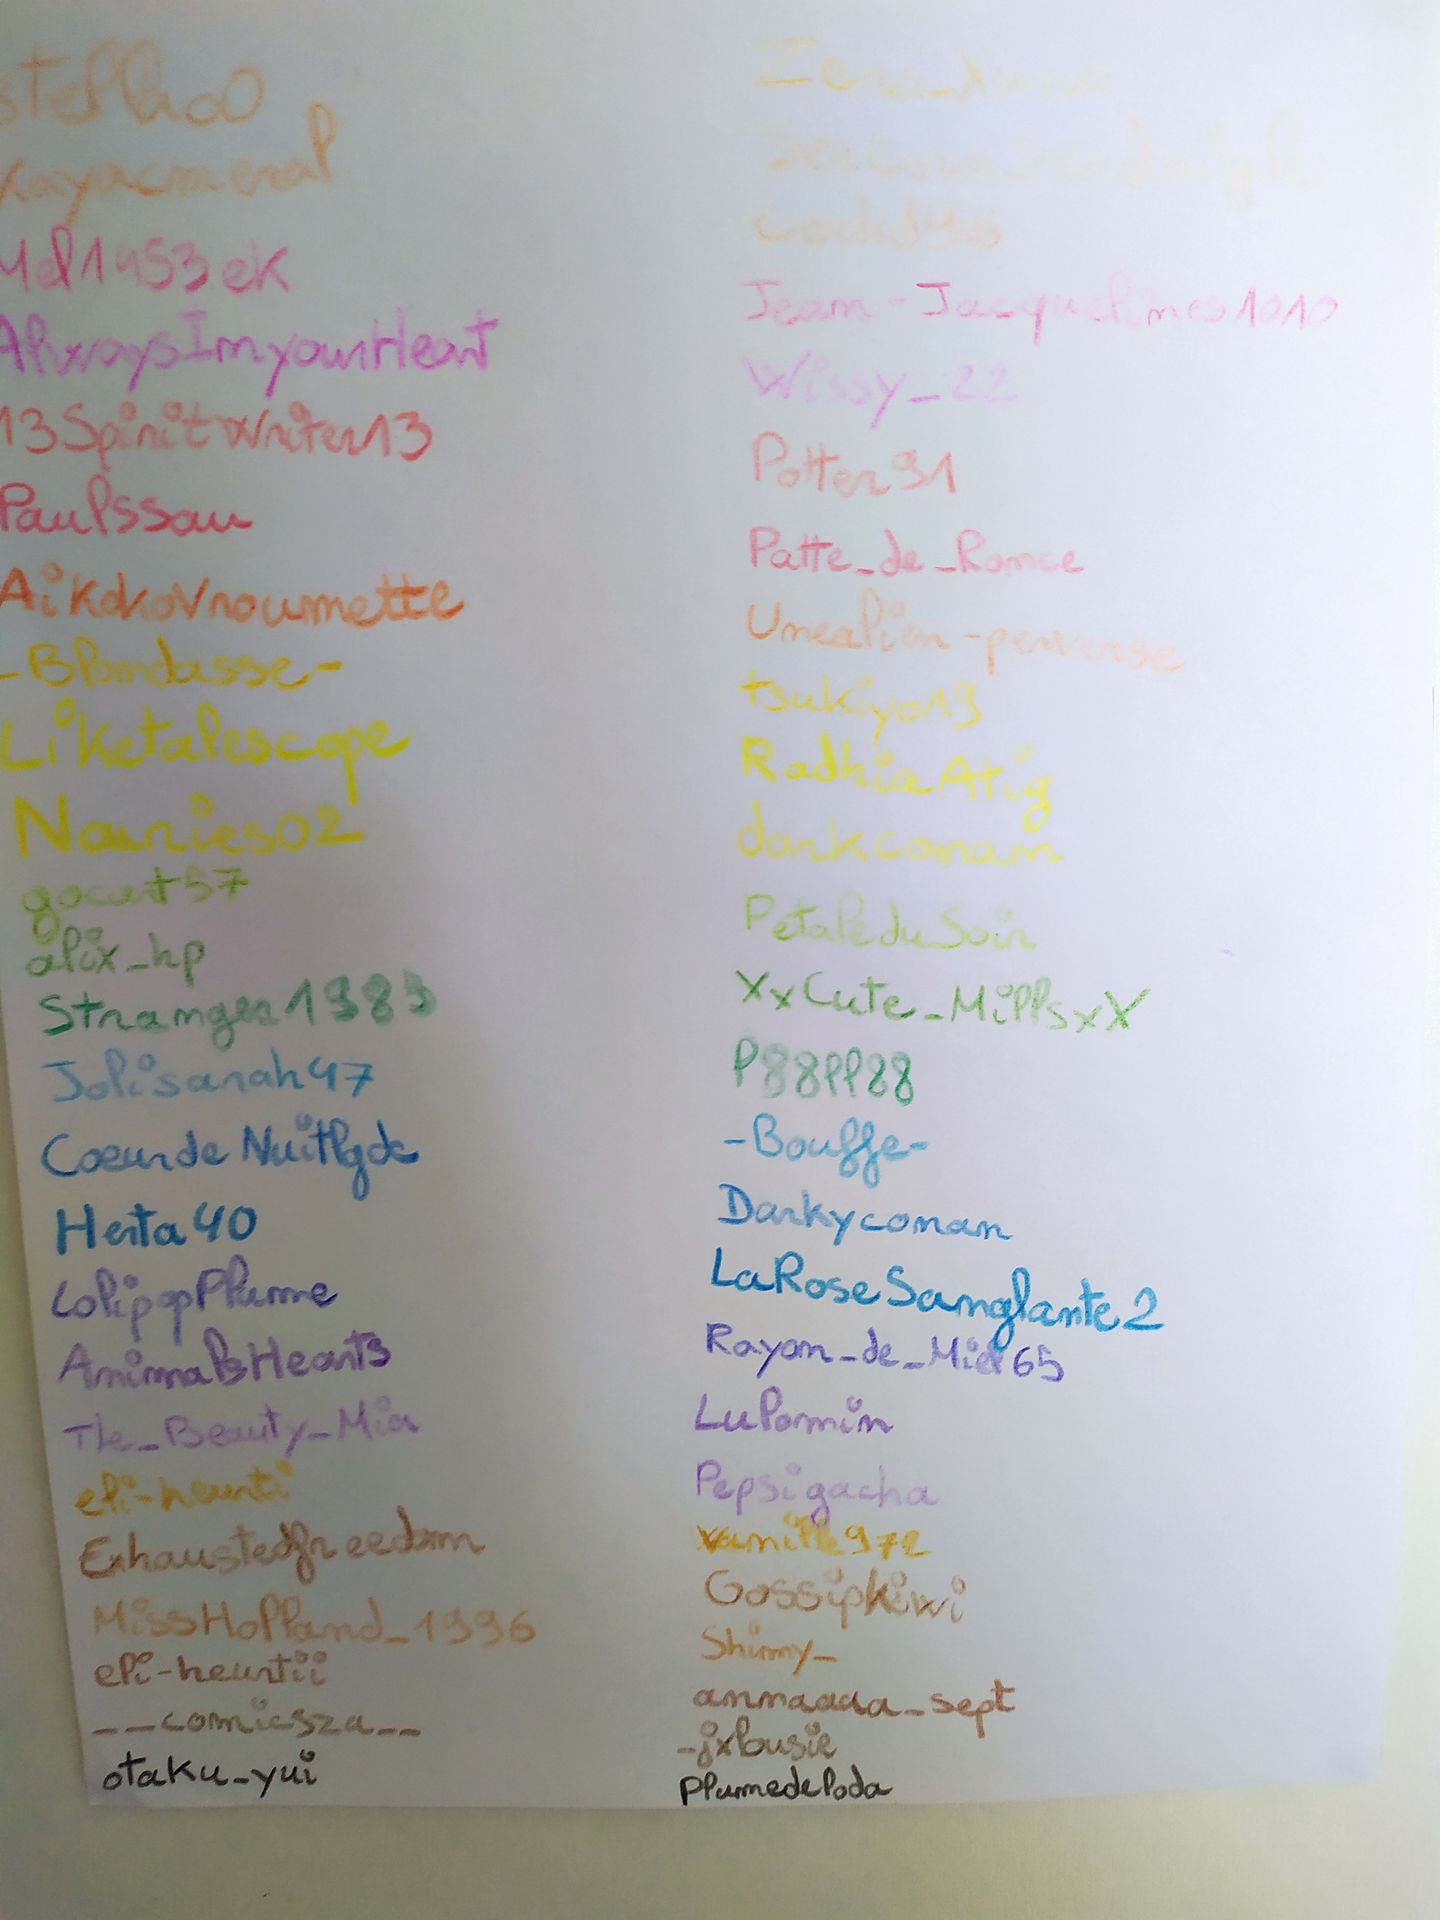 Xayacmeral
Mel1453ek
AlwaysImyourHeart
13SpiritWriter13
Paulssau
AikokoVroumette
-Blondasse-
Liketalescope
Naries02
gocert57
alix_hp
Stranger1983
Jolisarah47
CoeurdeNuitlgdc
Herta40
LolipopPlume
AnimalsHearts
The_Beauty_Mia
eli-heurti
Exhaustedfreedom
MissHolland_1996
eli-heurtii
__comicsza__
otaku_yui
Jean-Jacquelines1010
Wissy_22
Potter91
Patte_de_Ronce
Unealien-perverse
tsukiyo19
RadhiaAtig
darkconan
PetaleduSoir
XxCute_MillsxX
P88PP88
-Bouffe-
Darkyconan
LaRoseSanglante2
Rayon_de_Miel65
Lulomin
Pepsigacha
vanille972
Gossipkiwi
Shimy_
annaaaa_sept
-jxlousie
Plumedeloda